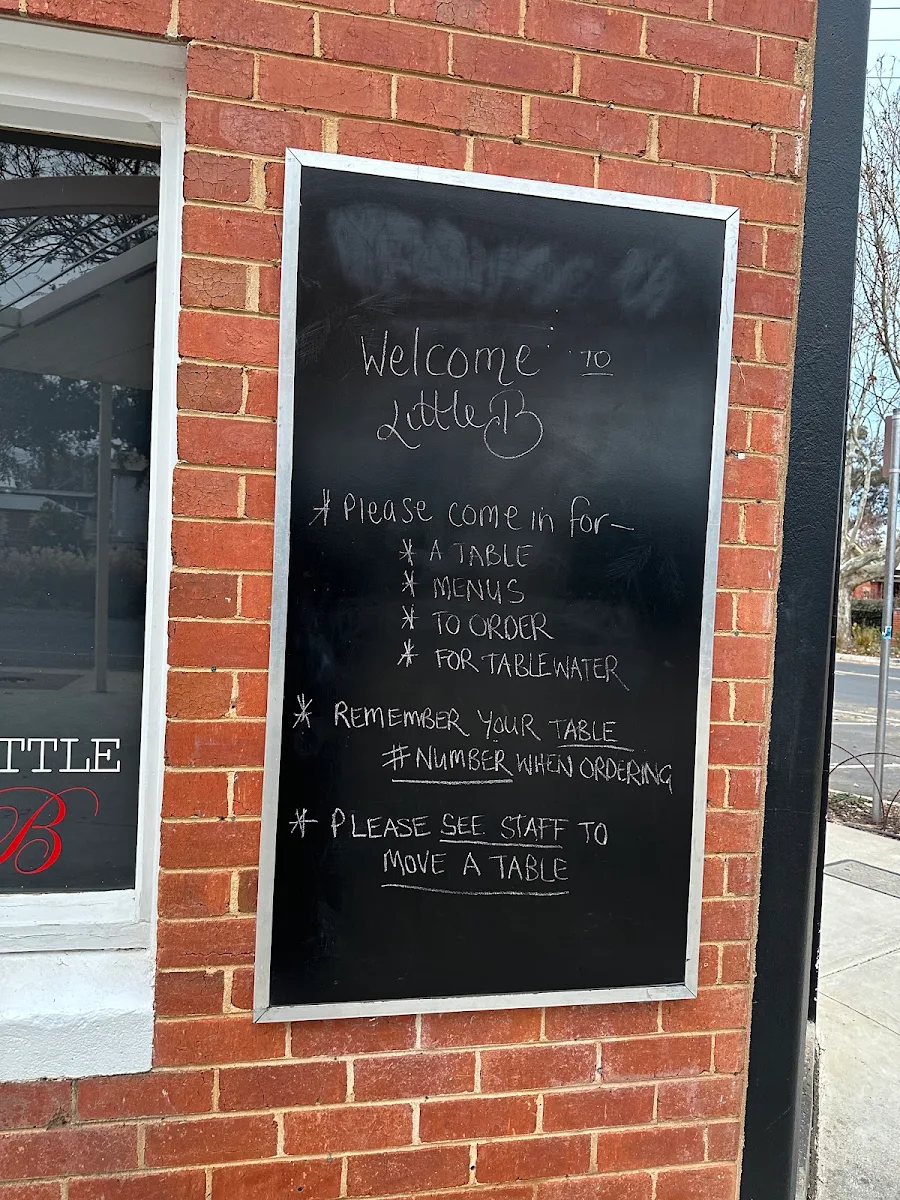 Welcome TO
Little B
* Please come in for—
* A TABLE
* MENUS
* TO ORDER
* FOR TABLEWATER
* REMEMBER YOUR TABLE
# NUMBER WHEN ORDERING
* PLEASE SEE STAFF TO
MOVE A TABLE
TTLE
B